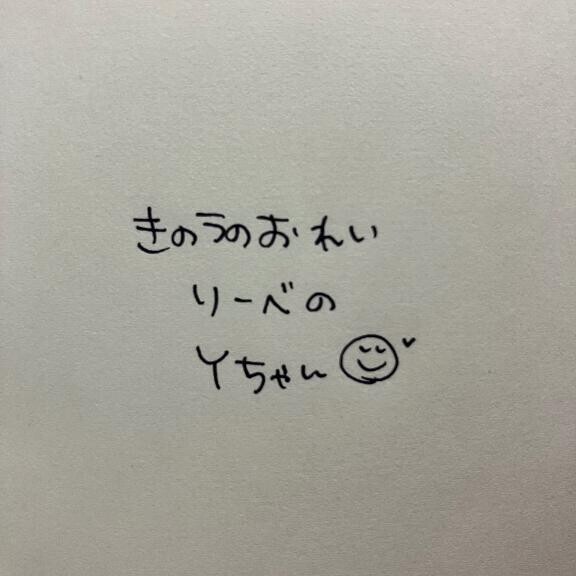 きのうのおれい
りーべの
Yちゃん